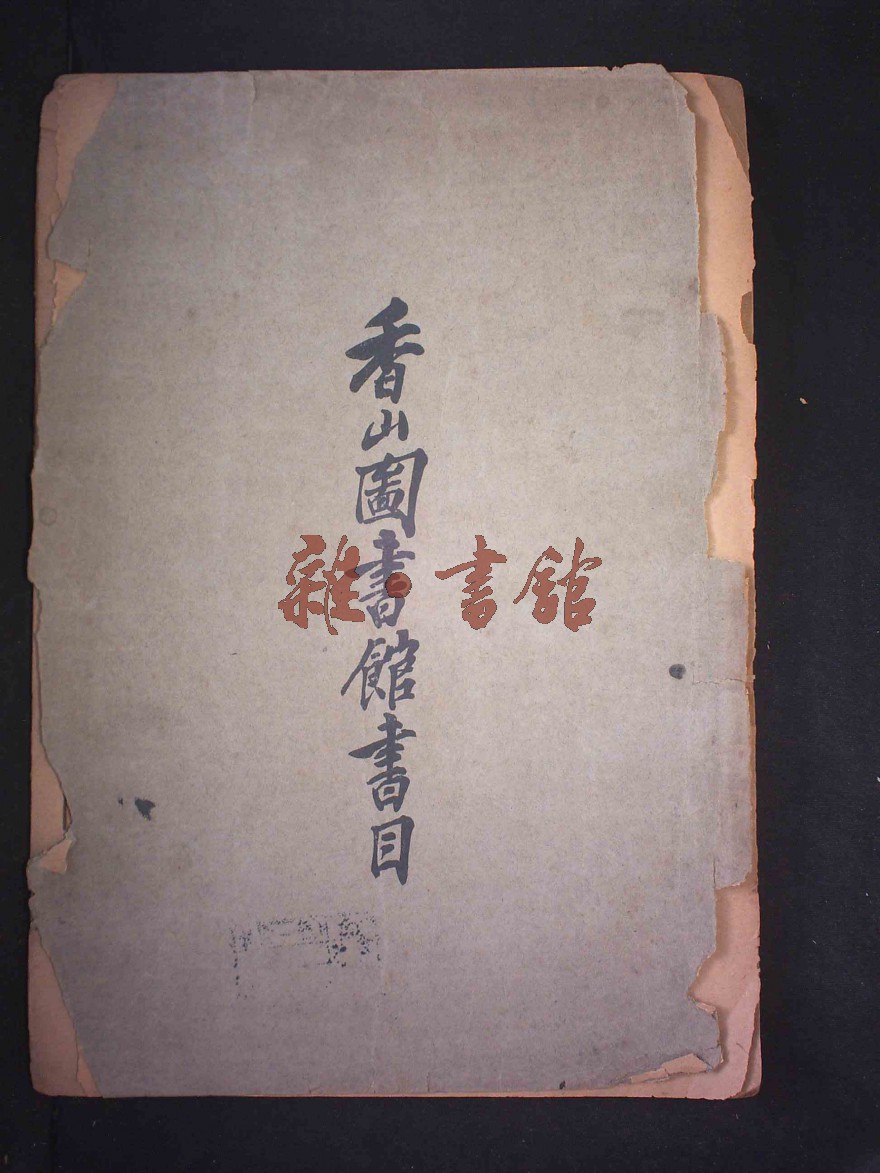 香山圖書館書目
雜·書館